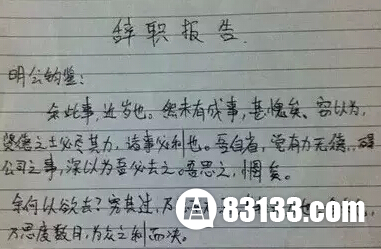 辞职报告
明公钧鉴:
余此事,近岁也。然未有成事,甚愧矣。窃以为,
贤德之士必尽其力,诸事必利也。吾自省,觉有力无德,碍
公司之事,深以为吾必去之。吾思之,惘矣。
余何以欲去?究其过,及
万思度数日,为众之利而决。
83133.com